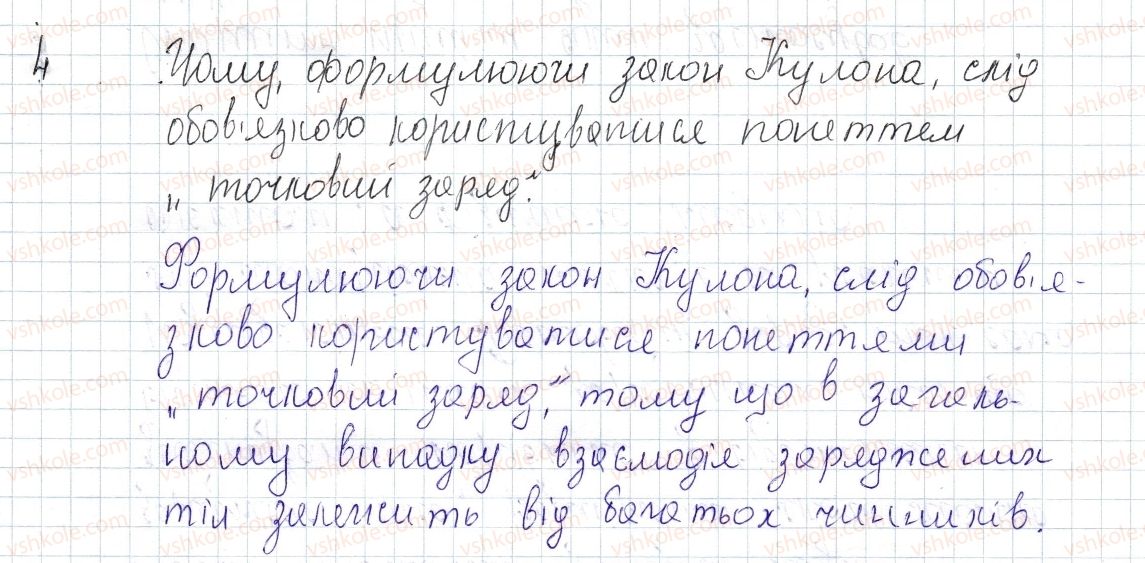 4 Чому, формулюючи закон Кулона, слід
обов'язково користуватися поняттям
„точковий заряд".
Формулюючи закон Кулона, слід обов'я-
зково користуватися поняттями
„точковий заряд", тому що в загаль-
ному випадку взаємодія заряджених
тіл залежить від багатьох чинників.